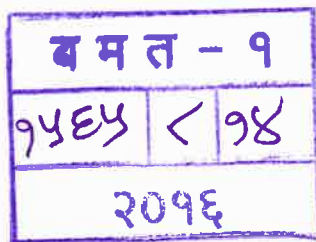 बमत - १
१५६५ ८ १४
२०१६